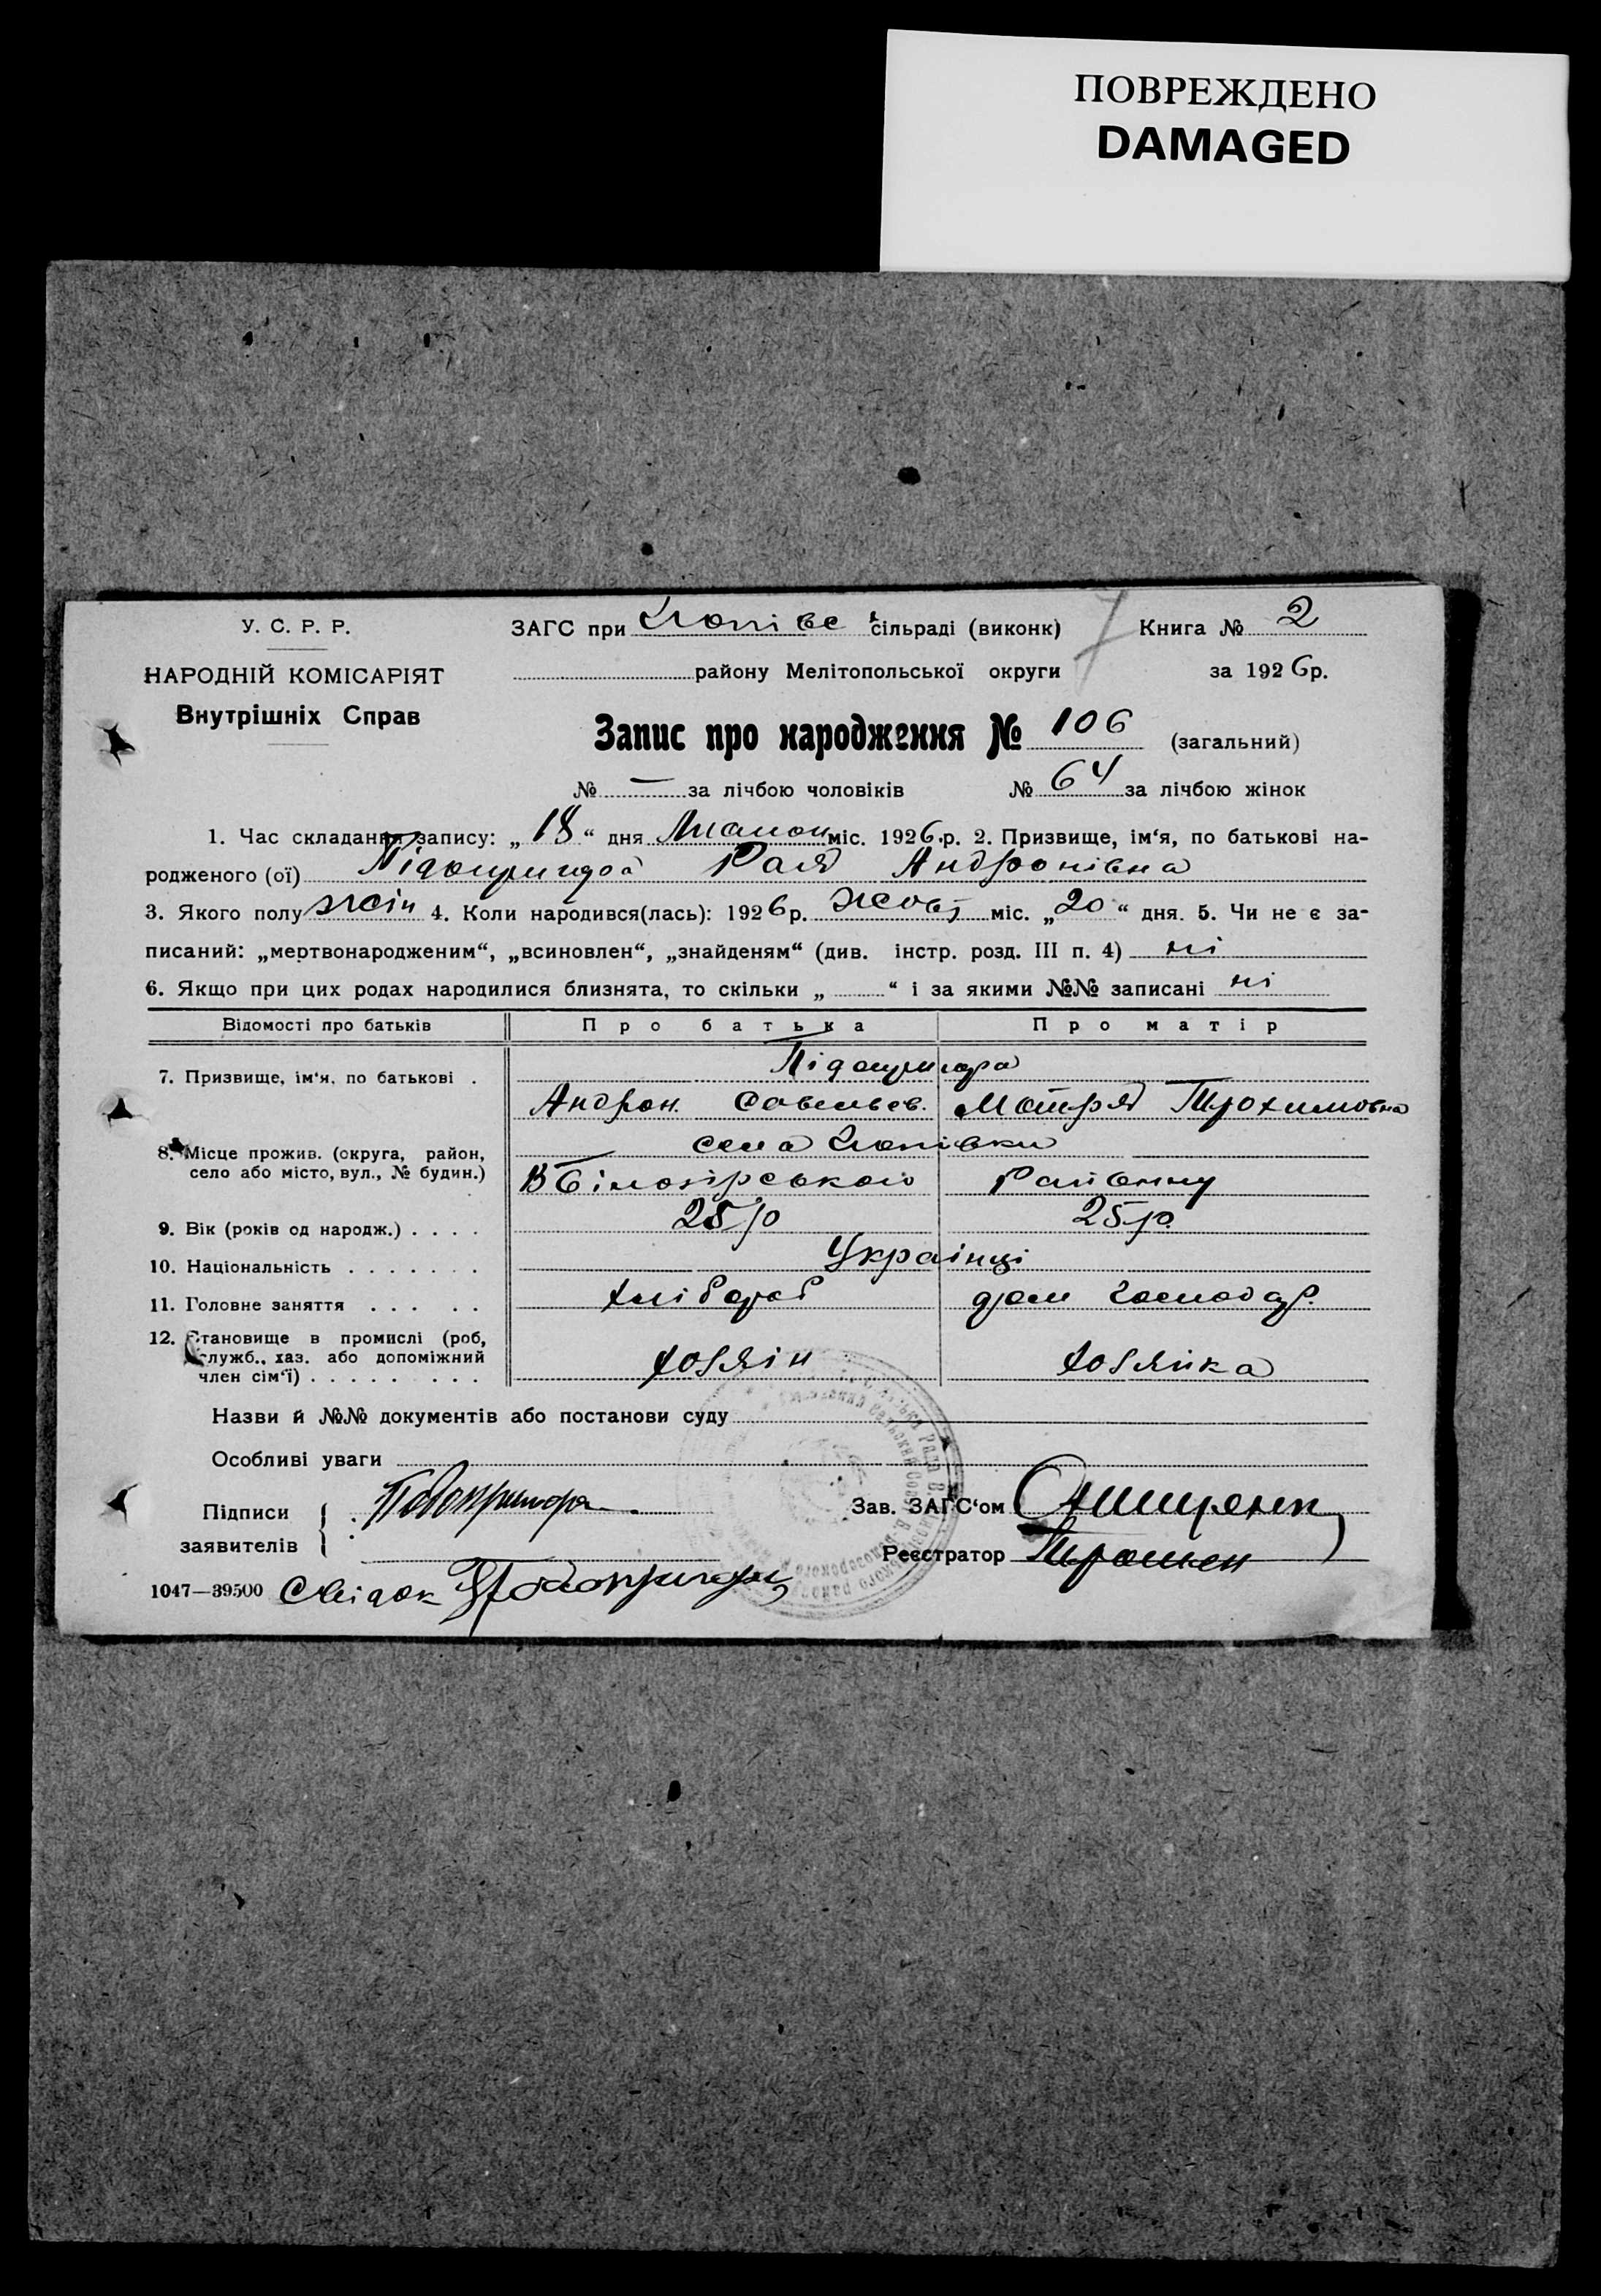 ПОВРЕЖДЕНО
DAMAGED
У. С. Р. Р.
НАРОДНІЙ КОМІСАРІЯТ
Внутрішніх Справ
ЗАГС при сільраді (виконк) Книга № 2
району Мелітопольської округи за 1926 р.
7
Запис про народження № 106 (загальний)
№ — за лічбою чоловіків № 64 за лічбою жінок
1. Час складання запису: „18“ дня Листоп міс. 1926 р. 2. Призвище, ім‘я, по батькові на-
родженого (ої) Підопригора Рая Андронівна
3. Якого полу жін 4. Коли народився(лась): 1926 р. Жовт міс. „20“ дня. 5. Чи не є за-
писаний: „мертвонародженим“, „всиновлен“, „знайденям“ (див. інстр. розд. III п. 4) ні
6. Якщо при цих родах народилися близнята, то скільки „ “ і за якими №№ записані ні
Відомості про батьків Про батька Про матір
7. Призвище, ім‘я, по батькові . Підопригора
Андрон. Савельев. Мотря Трохимовна
8. Місце прожив. (округа, район, села
село або місто, вул., № будин.) В Білозірського Району
9. Вік (років од народж.) . . . . 25 р 25 р.
10. Національність . . . . . . . Українці
11. Головне заняття . . . . . Хлібороб дом господар.
12. Становище в промислі (роб,
служб., хаз. або допоміжний
член сім‘ї) . . . . . . . . . Хозяін Хозяйка
Назви й №№ документів або постанови суду
Особливі уваги
Підписи
заявителів Подопригора Зав. ЗАГС‘ом
Реєстратор
1047—39500 Свідок Подопригора